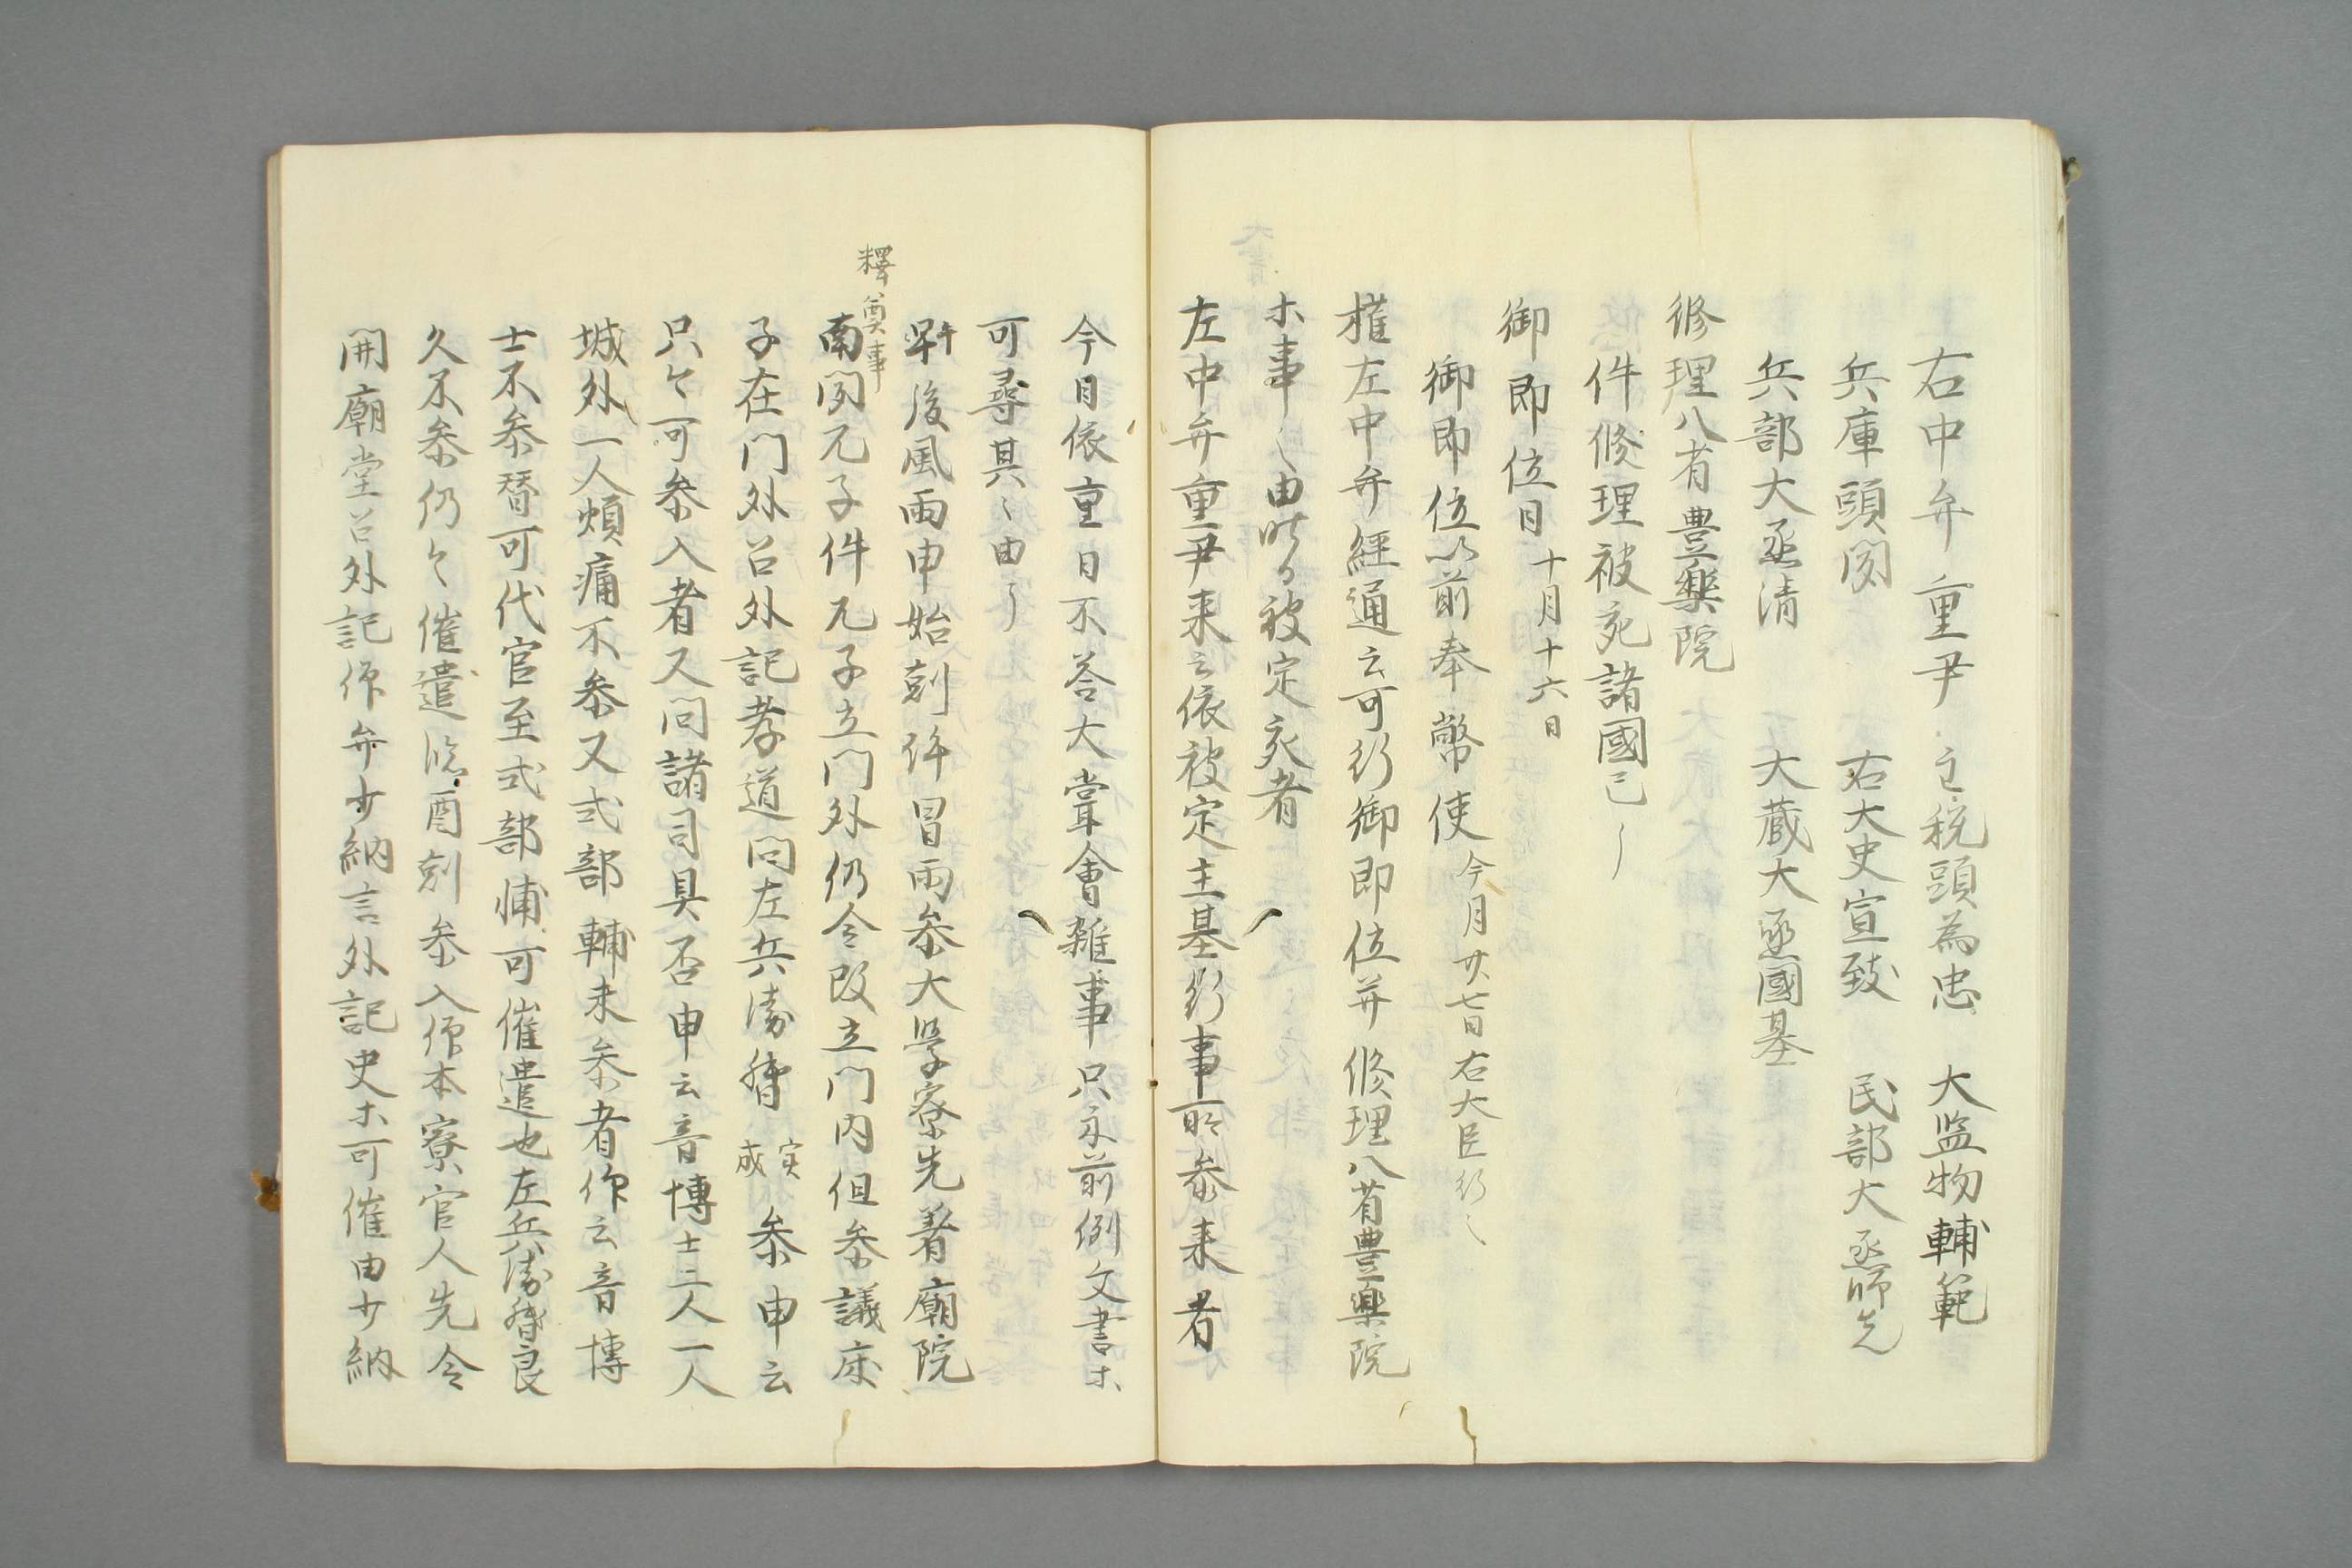 右中弁重尹 主税頭為忠 大監物輔範
兵庫頭閑 右大史宣致 民部大丞師光
兵部大丞清 大蔵大丞國基
修理八省豊樂院
件修理被宛諸國已了
御即位日 十月十六日
御即位以前奉幣使 今月廿七日右大臣行〻
権左中弁經通云可行御即位并修理八省豊樂院
木事〻由昨日被定宛者
左中弁重尹来云依被定主基行事所参来者
今日依重日不荅大甞會雑事只永前例文書木
可尋其〻由了
釋奠事
午後風雨申始剋許冒雨参大學寮先着廟院
南閇兀子件兀子立门外仍令改立门内但参議床
子在门外召外記孝道問左兵衛督 実成 参申云
只今可参入者又问諸司具否申云音博士二人一人
城外一人煩痛不参又式部輔未参者仰云音博
士不参替可代官至式部輔可催遣也左兵衛督良
久不参仍令催遣臨酉剋参入仰本寮官人先令
開廟堂召外記仰弁少納言外記史木可催由少納